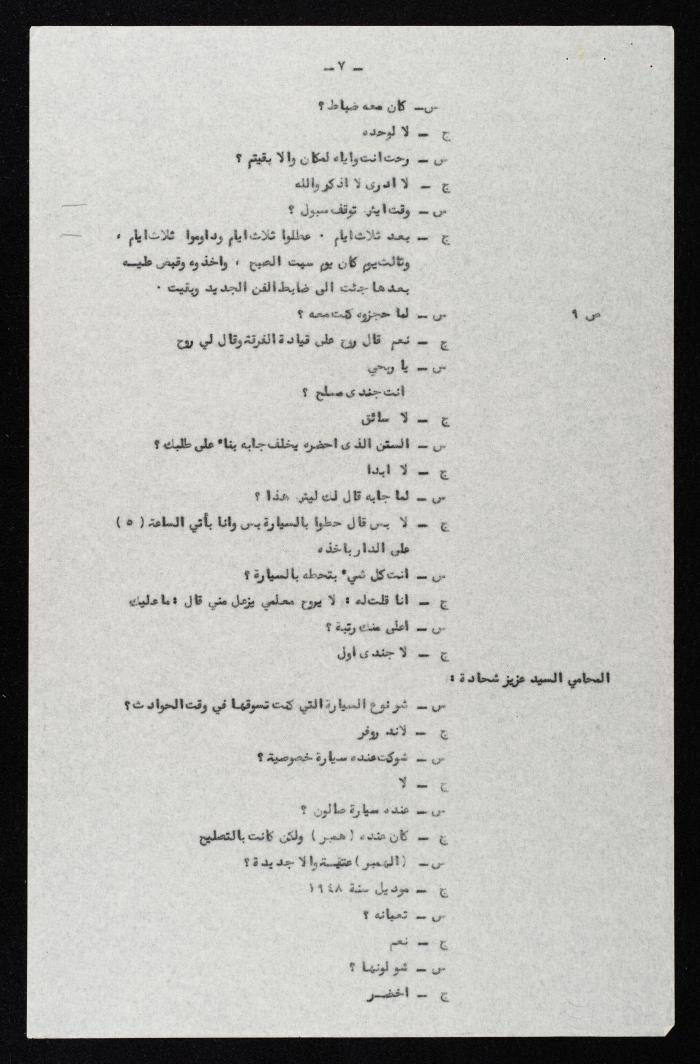 ـ ٧ ـ
س ـ كان معه ضباط ؟
ج ـ لا لوحده
س ـ رحت انت واياه لمكان والا بقيتم ؟
ج ـ لا ادرى لا اذكر والله
س ـ وقت ايش توقف سبول ؟
ج ـ بعد ثلاث ايام ٠ عطلوا ثلاث ايام وداوموا ثلاث ايام ،
وثالث يوم كان يوم سبت الصبح ، واخذوه وقبض عليه
بعدها جئت الى ضابط الفن الجديد وبقيت ٠
ص ٩ س ـ لما حجزوه كنت معه ؟
ج ـ نعم قال روح على قيادة الفرقة وقال لي روح
س ـ يا ربحي
انت جندى مسلح ؟
ج ـ لا سائق
س ـ الستن الذى احضره يخلف جابه بناء على طلبك ؟
ج ـ لا ابدا
س ـ لما جابه قال لك ليش هذا ؟
ج ـ لا بس قال حطوا بالسيارة بس وانا بأتي الساعة ( ٥ )
على الدار باخذه
س ـ انت كل شيء بتحطه بالسيارة ؟
ج ـ انا قلت له : لا يروح معلمي يزعل مني قال : ما عليك
س ـ اعلى منك رتبة ؟
ج ـ لا جندى اول
المحامي السيد عزيز شحادة :
س ـ شو نوع السيارة التي كنت تسوقها في وقت الحوادث ؟
ج ـ لاند روفر
س ـ شوكت عنده سيارة خصوصية ؟
ج ـ لا
س ـ عنده سيارة صالون ؟
ج ـ كان عنده ( همبر ) ولكن كانت بالتصليح
س ـ ( الهمبر ) عتيقة والا جديدة ؟
ج ـ موديل سنة ١٩٤٨
س ـ تعبانه ؟
ج ـ نعم
س ـ شو لونها ؟
ج ـ اخضر